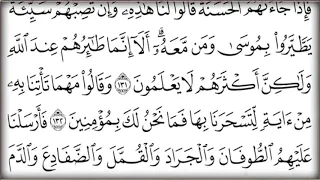 فَإِذَا جَآءَتْهُمُ ٱلْحَسَنَةُ قَالُوا۟ لَنَا هَٰذِهِۦ وَإِن تُصِبْهُمْ سَيِّئَةٌ
يَطَّيَّرُوا۟ بِمُوسَىٰ وَمَن مَّعَهُۥٓ أَلَآ إِنَّمَا طَٰٓئِرُهُمْ عِندَ ٱللَّهِ
وَلَٰكِنَّ أَكْثَرَهُمْ لَا يَعْلَمُونَ ١٣١ وَقَالُوا۟ مَهْمَا تَأْتِنَا بِهِۦ
مِنْ ءَايَةٍ لِّتَسْحَرَنَا بِهَا فَمَا نَحْنُ لَكَ بِمُؤْمِنِينَ ١٣٢ فَأَرْسَلْنَا
عَلَيْهِمُ ٱلطُّوفَانَ وَٱلْجَرَادَ وَٱلْقُمَّلَ وَٱلضَّفَادِعَ وَٱلدَّمَ